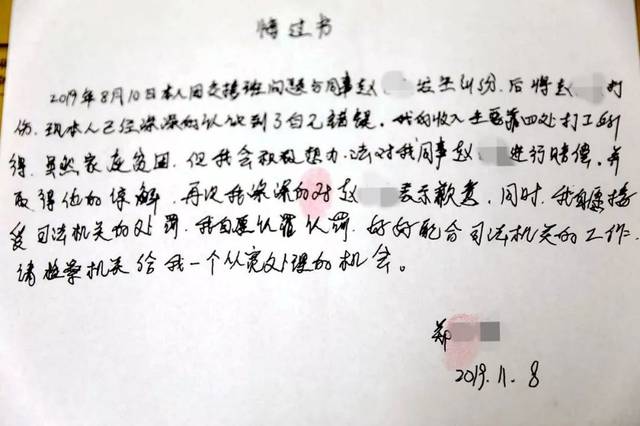 悔过书
2019年8月10日本人因交接班问题与同事赵 发生纠纷,后将赵 打
伤,现本人已经深深的认识到了自己错误。我的收入主要靠四处打工所
得,虽然家庭贫困,但我会积极想办法对我同事赵 进行赔偿,并
取得他的谅解,再次我深深的对赵 表示歉意,同时,我自愿接
受司法机关的处罚,我自愿认罪认罚,好好配合司法机关的工作,
请检察机关给我一个从宽处理的机会。
郑
2019.11.8